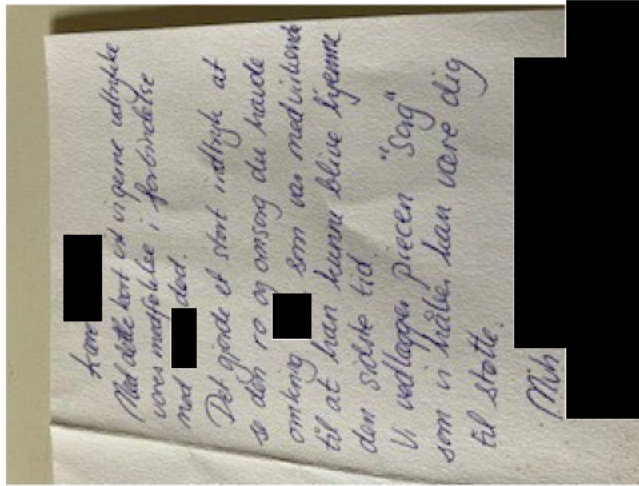 Kære
Med dette kort vil vi gerne udtrykke
vores medfølelse i forbindelse
med død.
Det gjorde et stort indtryk at
se den ro og omsorg du havde
omkring som var medvirkende
til at han kunne blive hjemme
den sidste tid.
Vi vedlægger piecen "Sorg"
som vi håber kan være dig
til støtte.